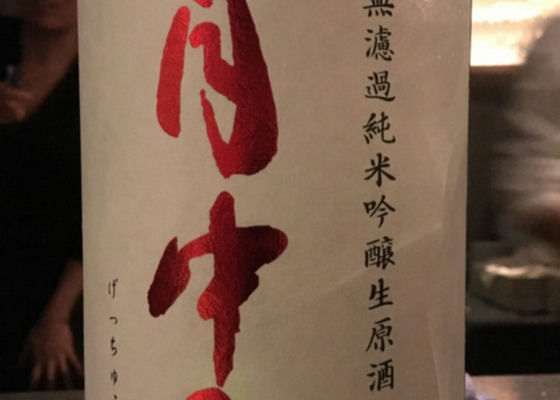 無濾過純米吟醸生原酒
月中
げっちゅ